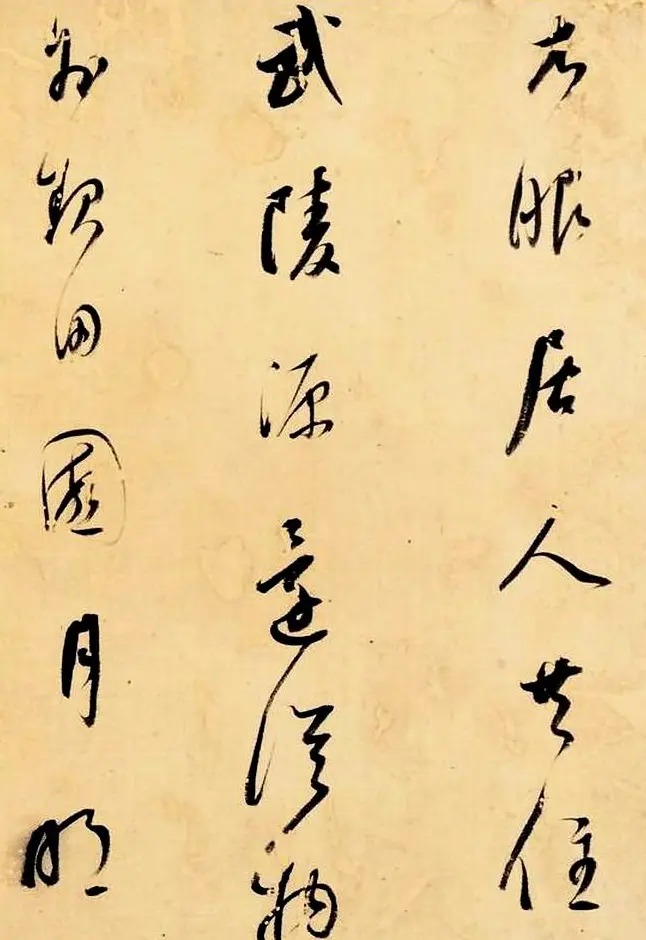 衣服居人共住
武陵源還從物
外起田園月明